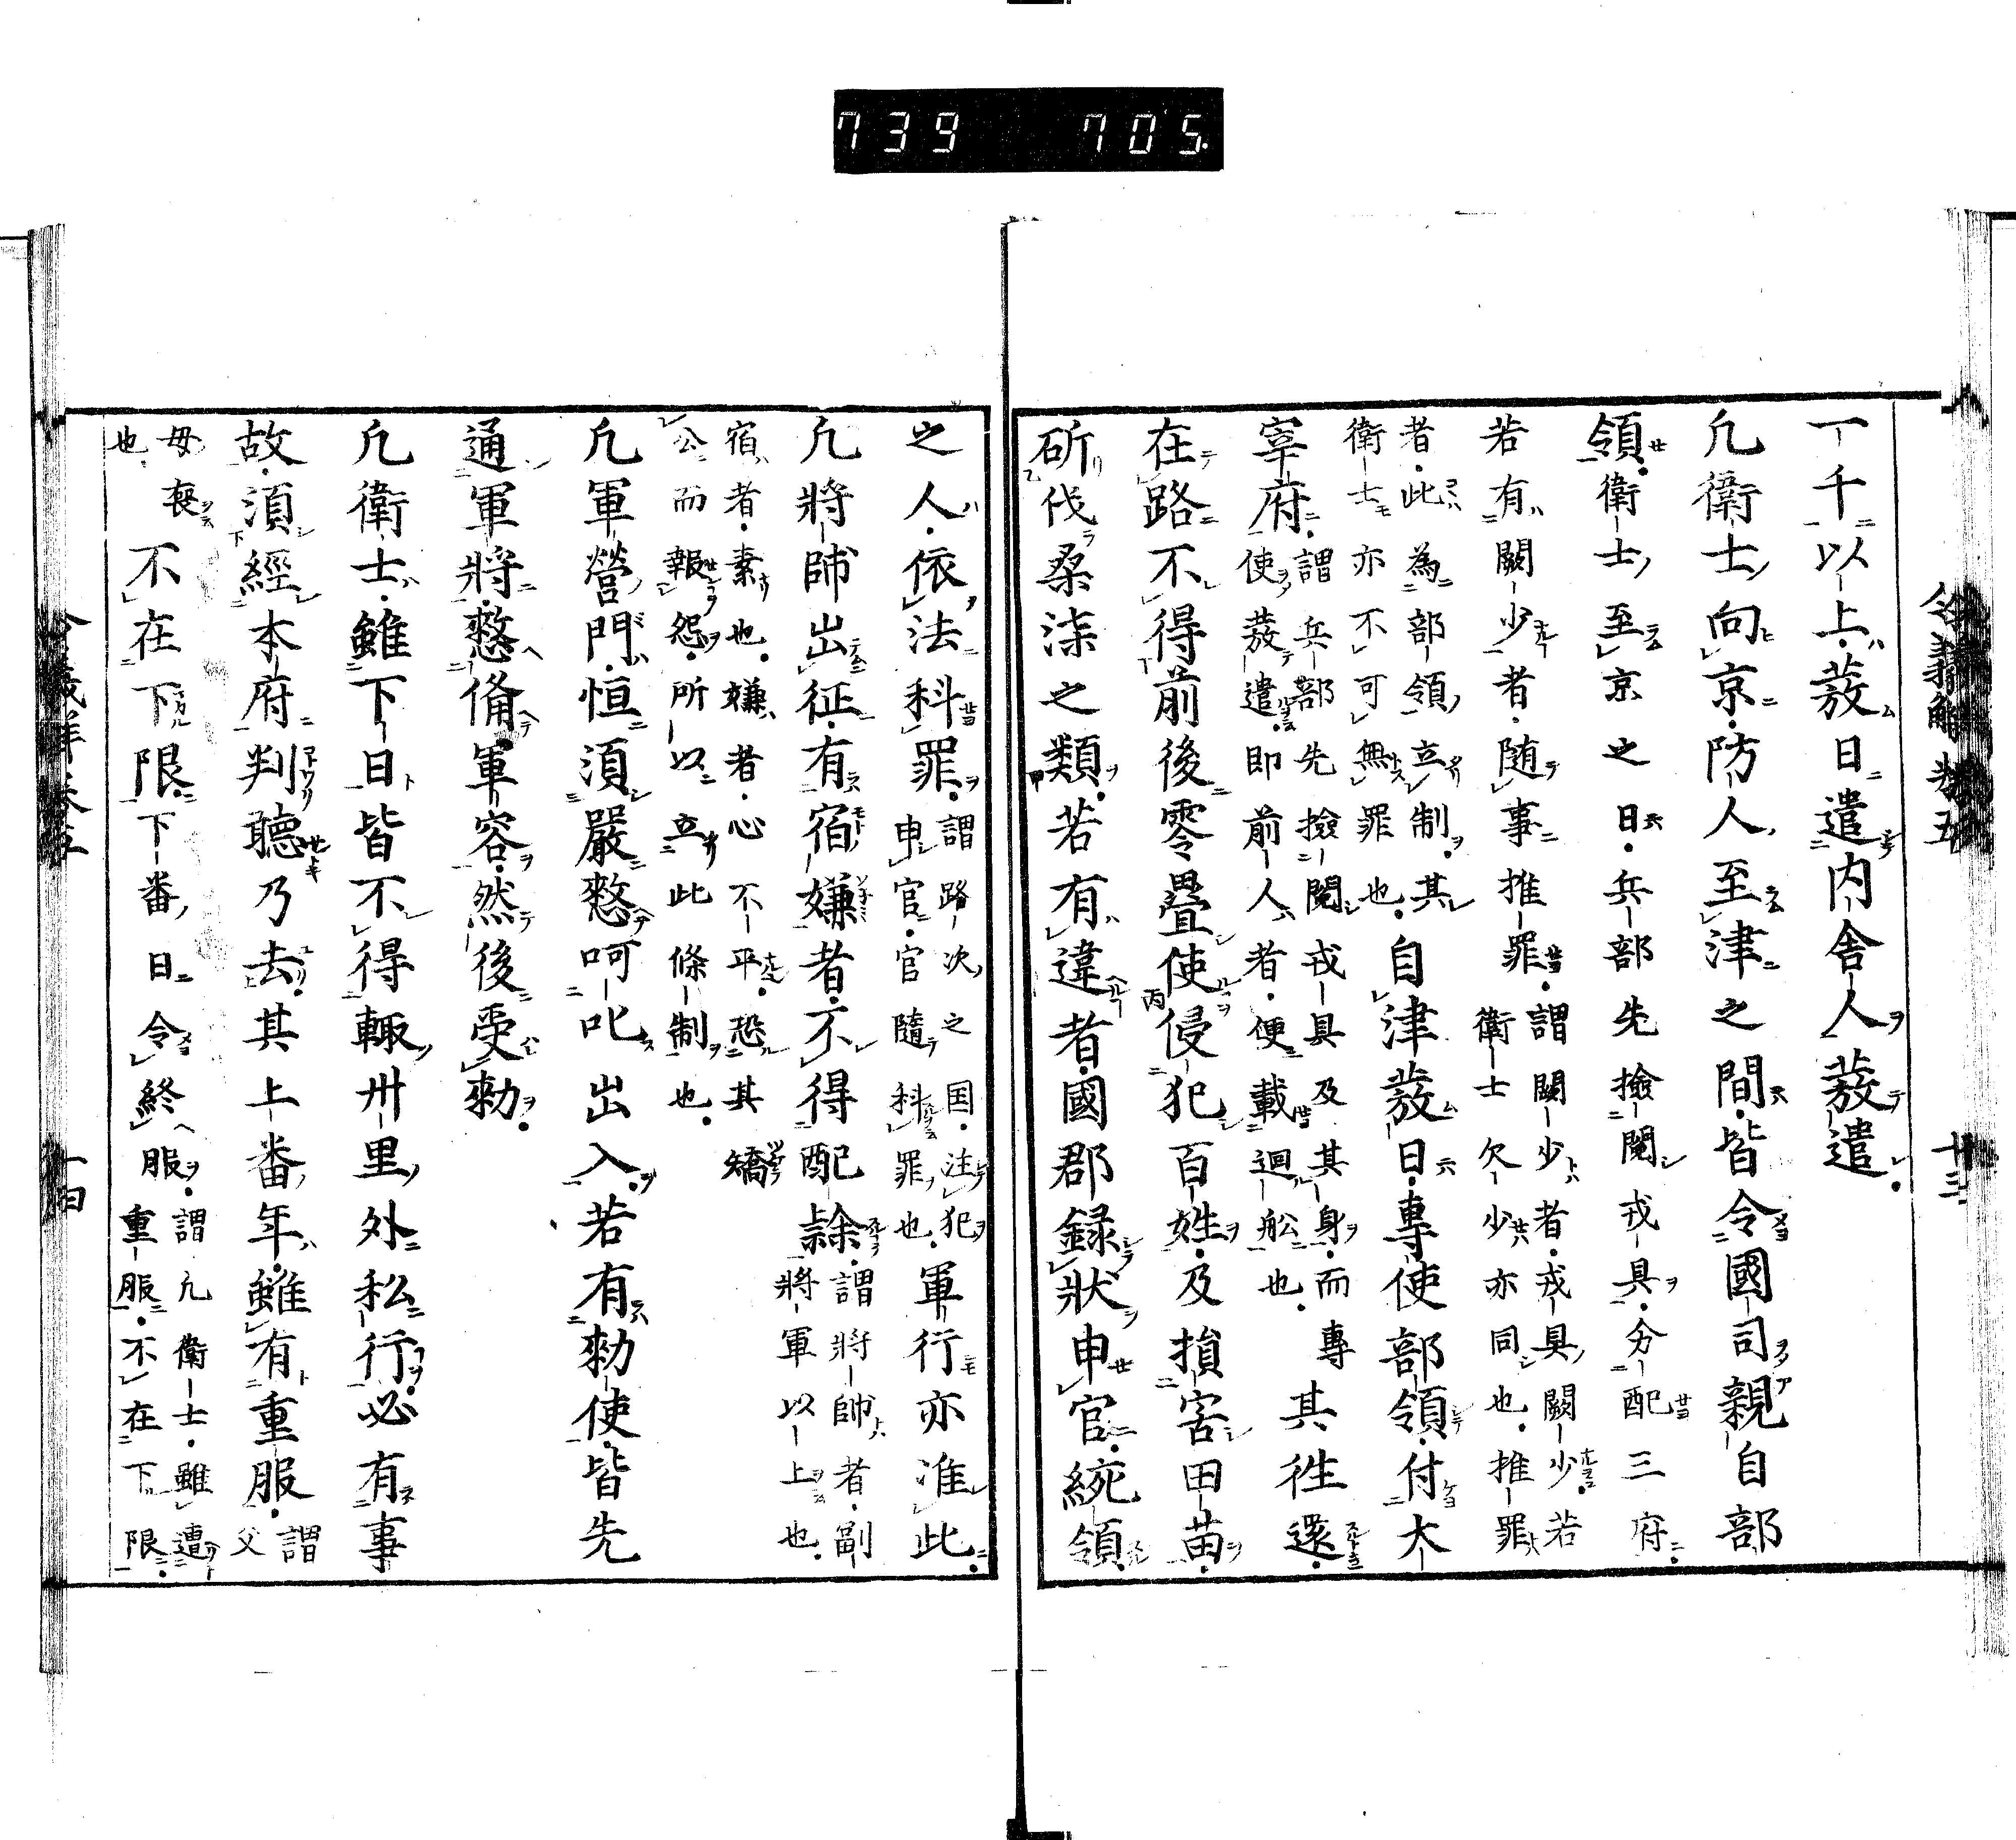 739 705
一千以上發日遣内舍人發遣
凢衛士向京防人至津之間皆令國司親自部
領衛士至京之日兵部先撿閲戎具分配三府
若有闕少者随事推罪謂闕少者戎具闕少若
衛士欠少亦同也推罪
者此為部領立制其
衛士亦不可無罪也自津發日專使部領付大
宰府謂兵部先撿閲戎具及其身而專
使發遣即前人者便載廻舩也其徃還
在路不得前後零疊使侵犯百姓及損害田苗
斫伐桑柒之類若有違者國郡録狀申官統領
之人依法科罪謂路次之国注犯
申官官隨科罪也軍行亦准此
凢將帥出征有宿嫌者不得配隷謂將帥者副
將軍以上也
宿者素也嫌者心不平恐其矯
公而報怨所以立此條制也
凢軍營門恒須嚴整呵叱出入若有勅使皆先
通軍將整備軍容然後受勅
凢衛士雖下日皆不得輙卅里外私行必有事
故須經本府判聽乃去其上番年雖有重服謂
父
母喪
也不在下限下番日令終服謂凢衛士雖遭
重服不在下限